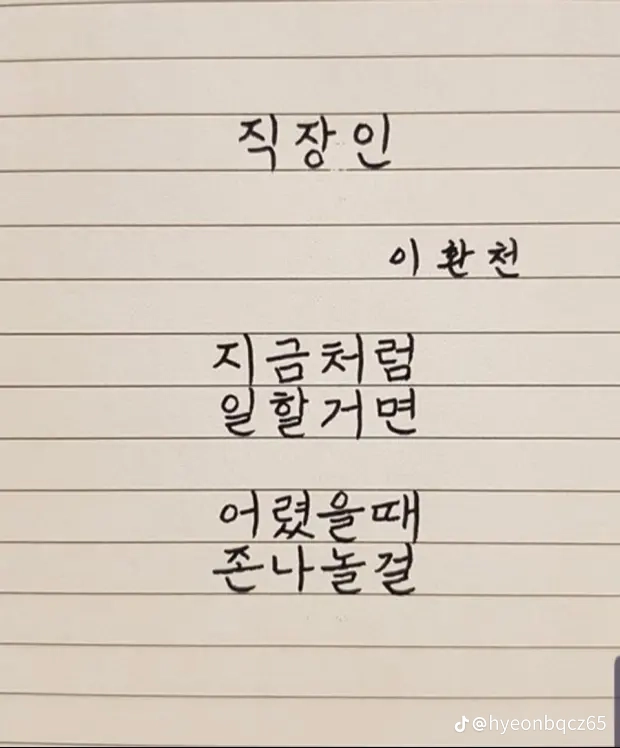 직장인
이환천
지금처럼
일할거면
어렸을때
존나놀걸
@hyeonbqcz65